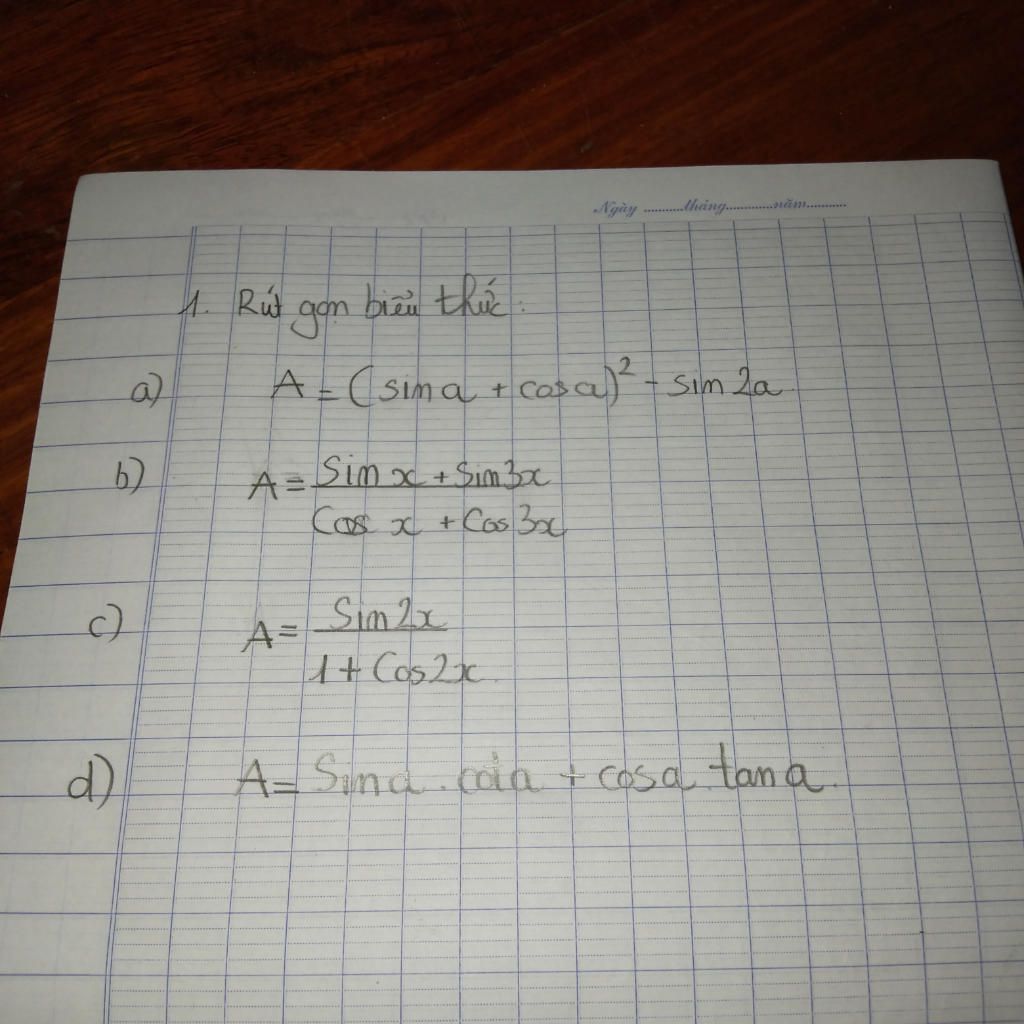 Ngày ..........tháng............năm..........
1. Rút gọn biểu thức:
a) A = (sina + cosa)² - sin2a
b) A = Sin x + Sin3x
Cos x + Cos3x
c) A = Sin2x
1 + Cos2x
d) A = Sina . cota + cosa . tana.